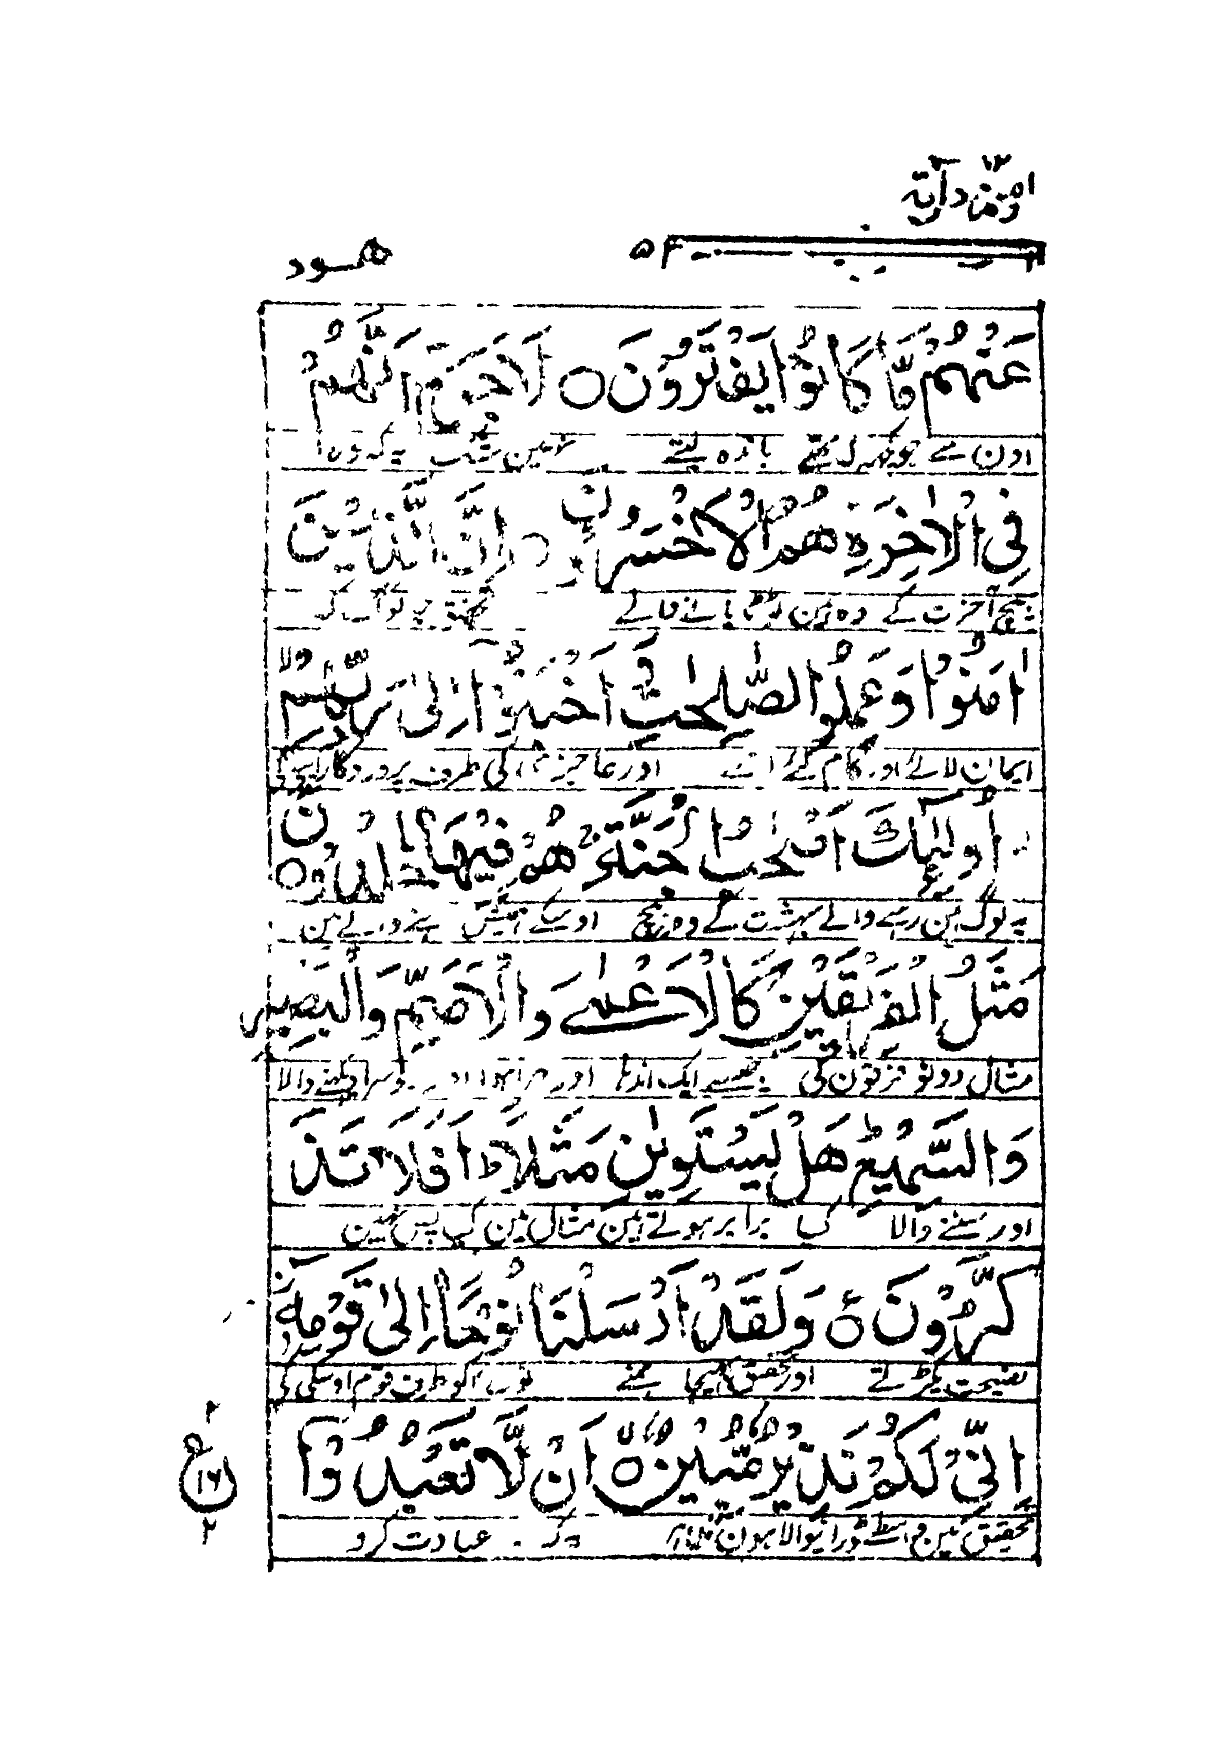 ومن دآبة ١٢
۵۴
هود
عَنْهُمْ مَّا كَانُوْا يَفْتَرُوْنَ ○ لَاجَرَمَ اَنَّهُمْ
اون سے جو کچہہ کہ تھے باندہ لیتے نہین شک یہ کہ وہ
فِی الْاٰخِرَةِ هُمُ الْاَخْسَرُوْنَ ○ اِنَّ الَّذِیْنَ
بیچ آخرت کے وہ ہین ٹوٹا پانے والے تحقیق جو لوگ کہ
اٰمَنُوْا وَعَمِلُوا الصّٰلِحٰتِ وَ اَخْبَتُوْٓا اِلٰی رَبِّهِمْ لا
ایمان لائے اور کام کئے اچھے اور عاجزی کی طرف پروردگار اپنے کی
اُولٰٓئِكَ اَصْحٰبُ الْجَنَّةِ ج هُمْ فِیْهَا خٰلِدُوْنَ ○
یہ لوگ ہین رہنے والے بہشت کے وہ بیچ اوسکے ہمیش رہنے والے ہین
مَثَلُ الْفَرِیْقَیْنِ كَالْاَعْمٰے وَالْاَصَمِّ وَالْبَصِیْرِ
مثال دونو فرقون کی جیسے ایک اندھا اور بہرا اور دوسرا دیکھنے والا
وَالسَّمِیْعِ ط هَلْ یَسْتَوِیٰنِ مَثَلًا ط اَفَلَا تَذَ
اور سننے والا کیا برابر ہوتے ہین مثال مین کیا پس نہین
كَّرُوْنَ ○ ع وَلَقَدْ اَرْسَلْنَا نُوْحًا اِلٰی قَوْمِهٖٓ ز
نصیحت پکڑتے اور تحقیق بھیجا ہمنے نوح کو طرف قوم اوسکی کی
اِنِّیْ لَكُمْ نَذِیْرٌ مُّبِیْنٌ ○ لا اَنْ لَّا تَعْبُدُوْٓا
تحقیق مین واسطے تمہارے ڈرانیوالا ہون ظاہر یہ کہ نہ عبادت کرو
۲
ع
۱۶
۲